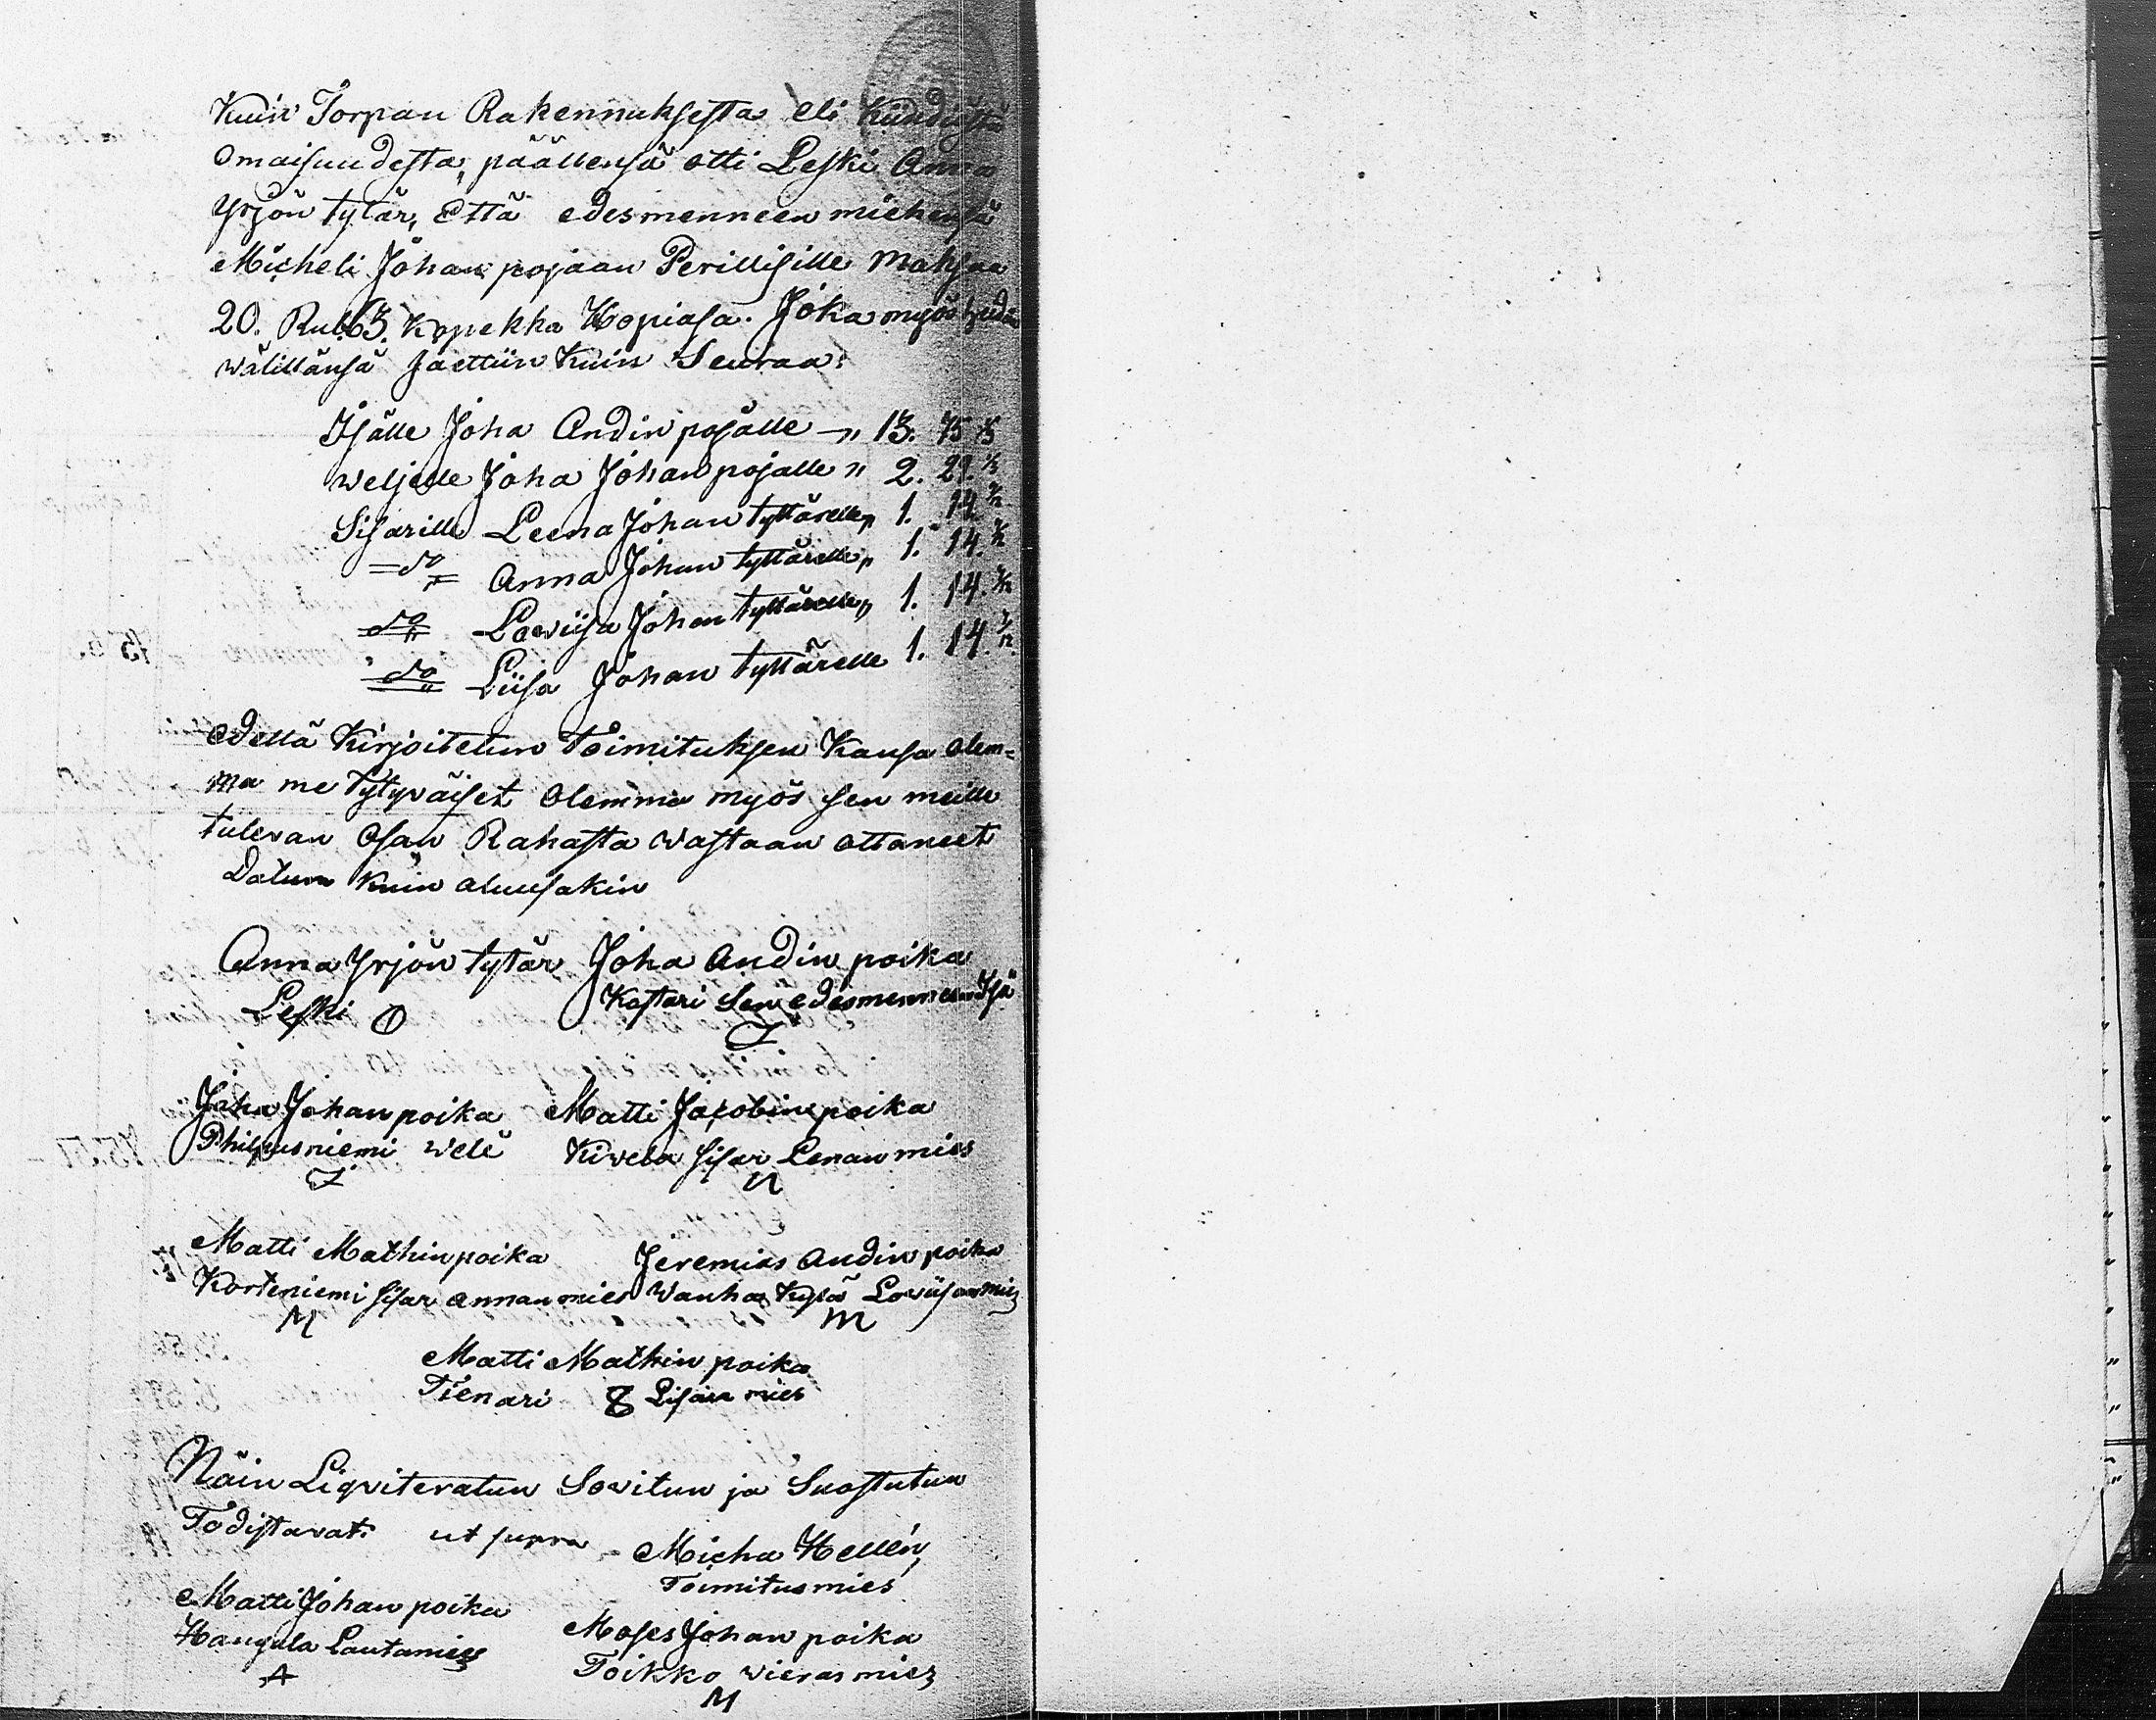 Kuin Torpan Rakennuksesta eli Kiindiästä
Omaisuudesta, päällensä otti Leski Anna
Yrjön tytär, Että edesmenneen miehensä
Micheli Johan pojaan Perillisille Maksaa
20. Rub. 63. Kopekka Hopiasa. Joka myös heidän
wälillänsä Jaettiin Kuin Seuraa:
Isälle Joha Andin pojalle —„ 13. 75 1/3
weljelle Joha Johan pojalle „ 2. 29. 1/6
Sisarille Leena Johan tyttärelle„ 1. 14. 7/12
=do= Anna Johan tyttärelle„ 1. 14. 7/12
do Lowiisa Johan tyttärelle„ 1. 14. 7/12
do Liisa Johan tyttärelle 1. 14. 7/12
Edellä Kirjoitetun Toimituksen Kansa olem=
Ma me Tytyväiset Olemma myös sen meille
tulevan Osan Rahasta wastaan ottaneet
Datum Kuin alunsakin
Anna Yrjön tytär Joha Andin poika
Leski O Kostari Sen edesmenneen Isä
J
Joha Johan poika Matti Jacobin poika
Philpusniemi weli Kivela sisar Lenan mies
J N
Matti Mathin poika Jeremias Andin poika
Korteniemi sisar annan mies Wanha Kylä Lowiisan mies
M M
Matti Mathin poika
Tienari 8 Lisan mies
Näin Liqviteratun Sovitun ja Suostutun
Todistavat ut supra Micha Hellén,
Toimitusmies
Matti Johan poika Moses Johan poika
Lautamies Toikko wieras mies
A M